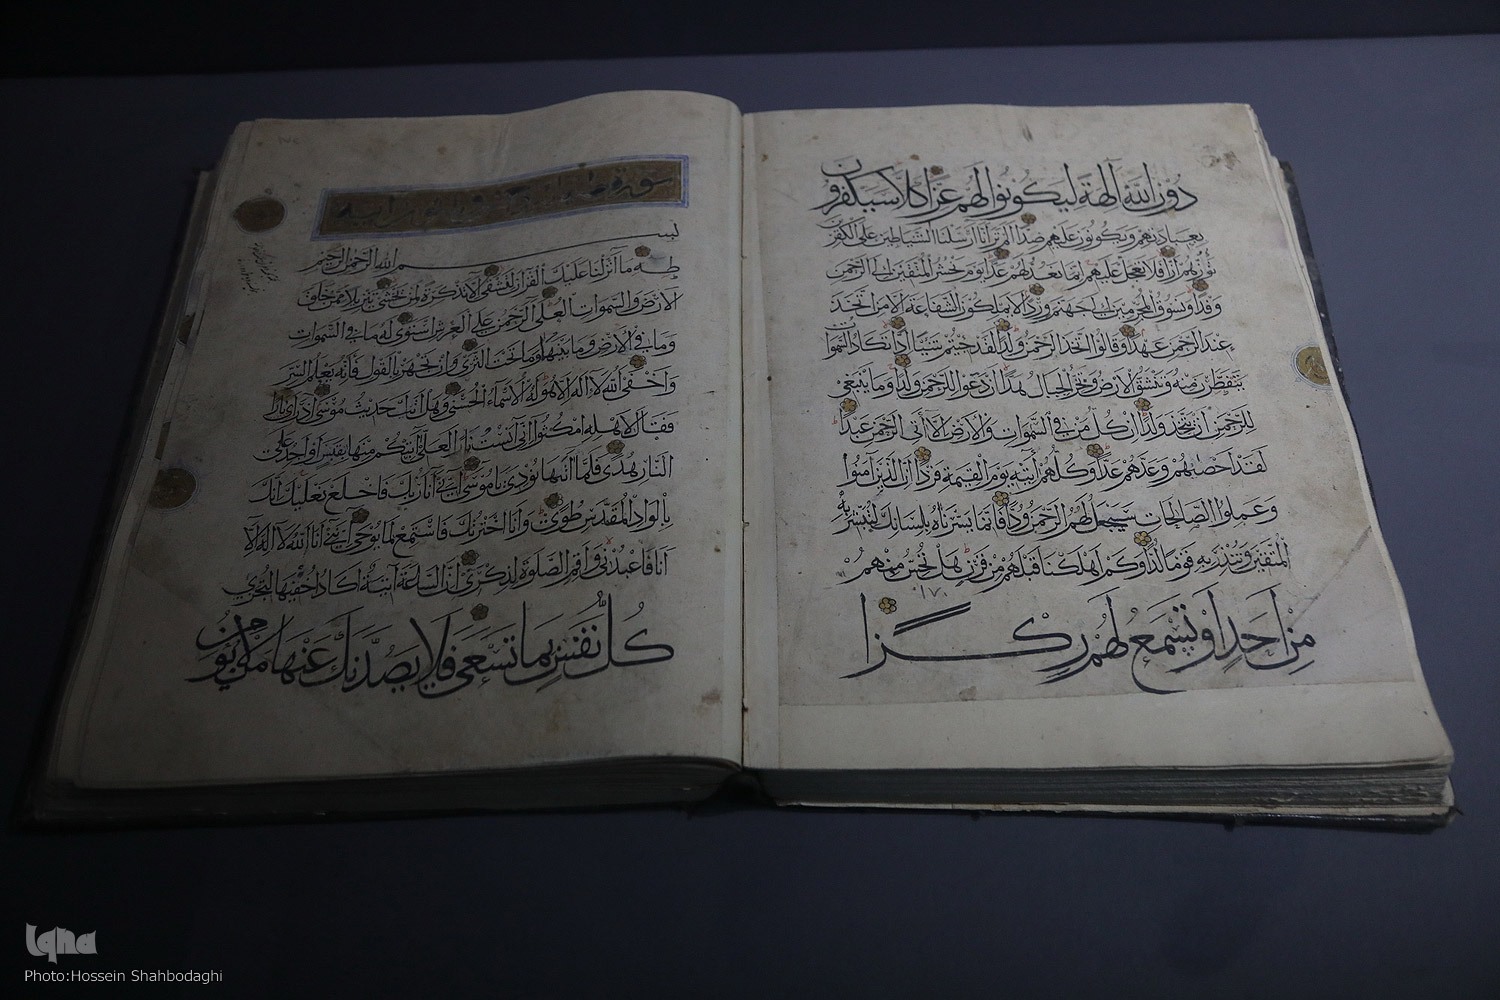 دون الله آلهة ليكونوا لهم عزا كلا سيكفرون
بعبادتهم ويكونون عليهم ضدا الم تر انا ارسلنا الشياطين على الكفرين
تؤزهم ازا فلا تعجل عليهم انما نعد لهم عدا يوم نحشر المتقين الى الرحمن
وفدا ونسوق المجرمين الى جهنم وردا لا يملكون الشفاعة الا من اتخذ
عند الرحمن عهدا وقالوا اتخذ الرحمن ولدا لقد جئتم شيئا ادا تكاد السموات
يتفطرن منه وتنشق الارض وتخر الجبال هدا ان دعوا للرحمن ولدا وما ينبغى
للرحمن ان يتخذ ولدا ان كل من فى السموات والارض الا آتى الرحمن عبدا
لقد احصيهم وعدهم عدا وكلهم آتيه يوم القيمة فردا ان الذين آمنوا
وعملوا الصالحات سيجعل لهم الرحمن ودا فانما يسرناه بلسانك لتبشر به
المتقين وتنذر به قوما لدا وكم اهلكنا قبلهم من قرن هل تحس منهم
من احد او تسمع لهم ركزا
سورة طه
بسم الله الرحمن الرحيم
طه ما انزلنا عليك القرآن لتشقى الا تذكرة لمن يخشى تنزيلا ممن خلق
الارض والسموات العلى الرحمن على العرش استوى له ما فى السموات
وما فى الارض وما بينهما وما تحت الثرى وان تجهر بالقول فانه يعلم السر
واخفى الله لا اله الا هو له الاسماء الحسنى وهل اتيك حديث موسى اذ رأى نارا
فقال لاهله امكثوا انى آنست نارا لعلى آتيكم منها بقبس او اجد على
النار هدى فلما اتيها نودى يا موسى انى انا ربك فاخلع نعليك انك
بالواد المقدس طوى وانا اخترتك فاستمع لما يوحى اننى انا الله لا اله الا
انا فاعبدنى واقم الصلوة لذكرى ان الساعة آتية اكاد اخفيها لتجزى
كل نفس بما تسعى فلا يصدنك عنها من لا يؤمن
Iqna
Photo:Hossein Shahbodaghi